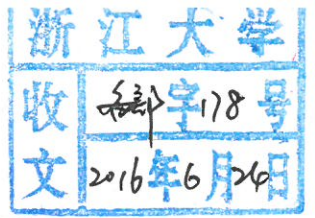 浙江大学
收文
字178号
2016年6月24日